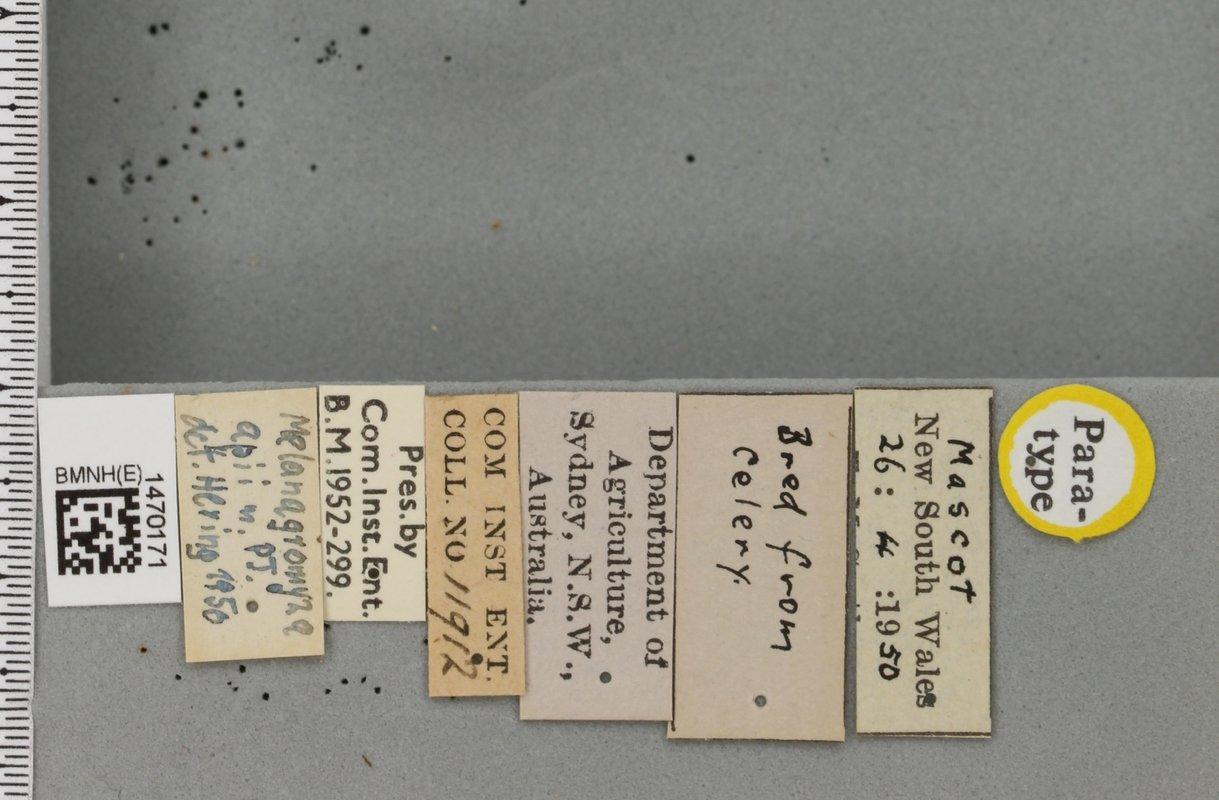 BMNH(E)
1470171
Melanagromyza
apii n.
det. Hering 1950
Pres.by
Com.Inst.Ent.
B.M.1952-299.
COM INST ENT.
COLL. NO 11912
Department of
Agriculture,
Sydney, N.S.W.,
Australia.
Bred from
celery.
Mascot
New South Wales
26: 4 :1950
Para-
type